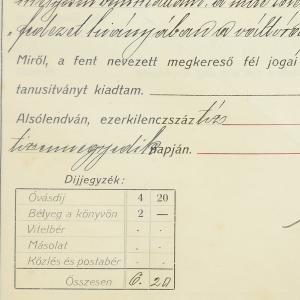 fedezet hiányában a váltó
Miről, a fent nevezett megkereső fél jogai
tanusítványt kiadtam.
Alsólendván, ezerkilenczszáz tiz
tizennegyedik napján.
Díjjegyzék:
Óvásdíj 4 20
Bélyeg a könyvön 2 —
Vitelbér . .
Másolat . .
Közlés és postabér . .
Összesen 6. 20